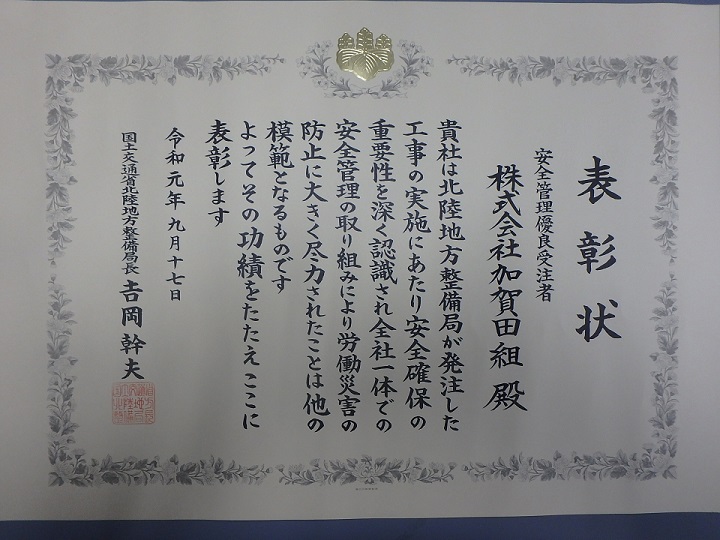 表彰状
安全管理優良受注者
株式会社加賀田組 殿
貴社は北陸地方整備局が発注した
工事の実施にあたり安全確保の
重要性を深く認識され全社一体での
安全管理の取り組みにより労働災害の
防止に大きく尽力されたことは他の
模範となるものです
よってその功績をたたえここに
表彰します
令和元年九月十七日
国土交通省北陸地方整備局長 吉岡幹夫